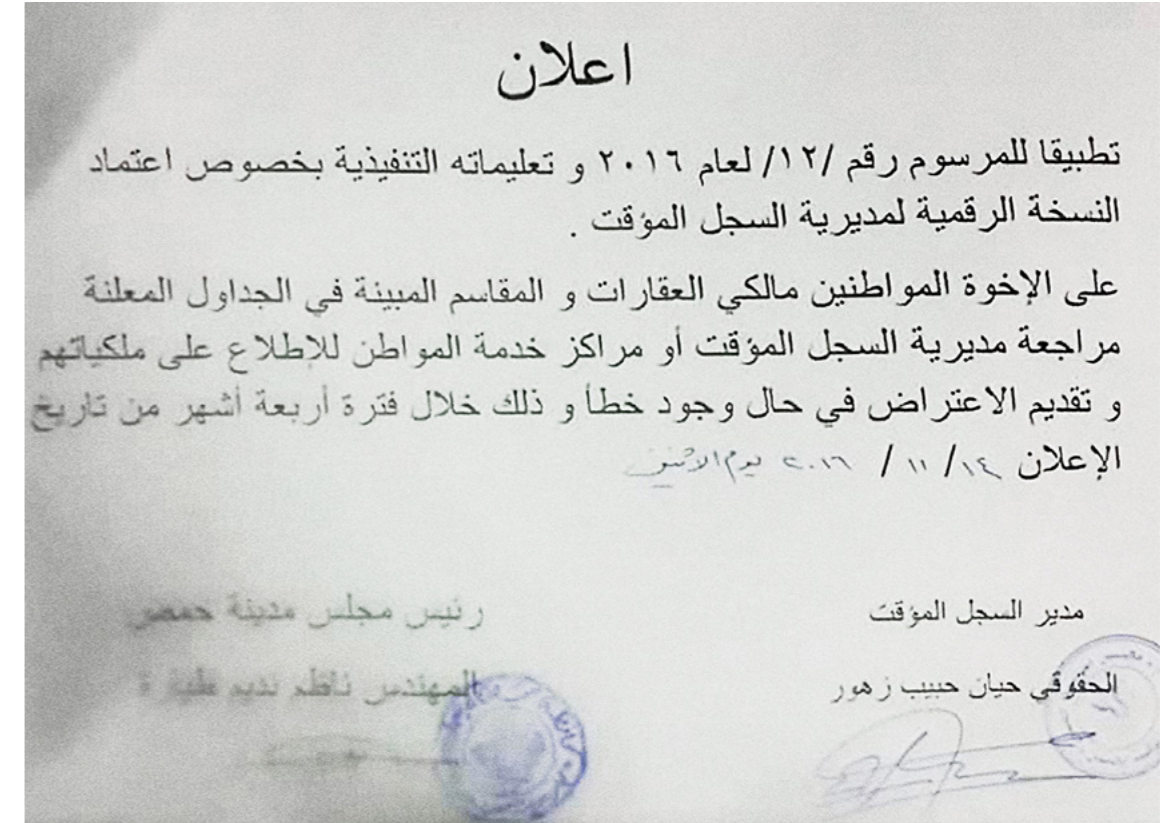 اعلان
تطبيقا للمرسوم رقم /١٢/ لعام ٢٠١٦ و تعليماته التنفيذية بخصوص اعتماد
النسخة الرقمية لمديرية السجل المؤقت .
على الإخوة المواطنين مالكي العقارات و المقاسم المبينة في الجداول المعلنة
مراجعة مديرية السجل المؤقت أو مراكز خدمة المواطن للإطلاع على ملكياتهم
و تقديم الاعتراض في حال وجود خطأ و ذلك خلال فترة أربعة أشهر من تاريخ
الإعلان ١٤/ ١١ / ٢٠١٦ يوم الاثنين
مدير السجل المؤقت
الحقوقي حيان حبيب زهور
رئيس مجلس مدينة حمص
المهندس ناظم نديم طيارة